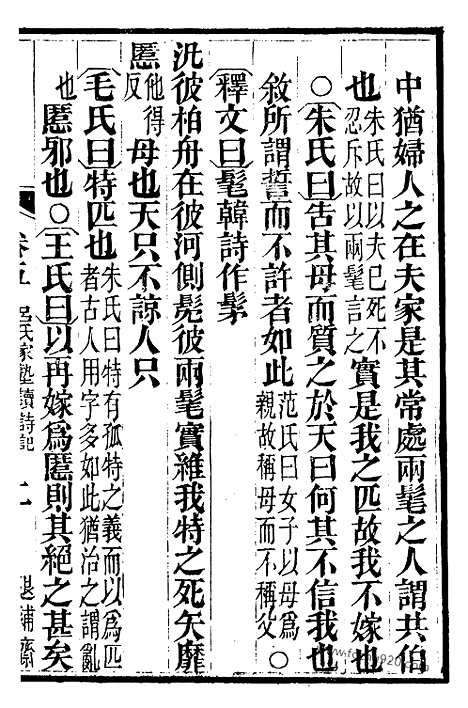 中猶婦人之在夫家是其常處兩髦之人謂共伯
也朱氏曰以夫已死不忍斥故以兩髦言之實是我之匹故我不嫁也
○朱氏曰告其母而質之於天曰何其不信我也
敘所謂誓而不許者如此范氏曰女子以母爲親故稱母而不稱父○
釋文曰髦韓詩作髳
汎彼柏舟在彼河側髧彼兩髦實維我特之死矢靡
慝他得反母也天只不諒人只
毛氏曰特匹也朱氏曰特有孤特之義而以爲匹者古人用字多如此猶治之謂亂
也慝邪也○王氏曰以再嫁爲慝則其絕之甚矣
卷五 呂氏家塾讀詩記 二 退補齋